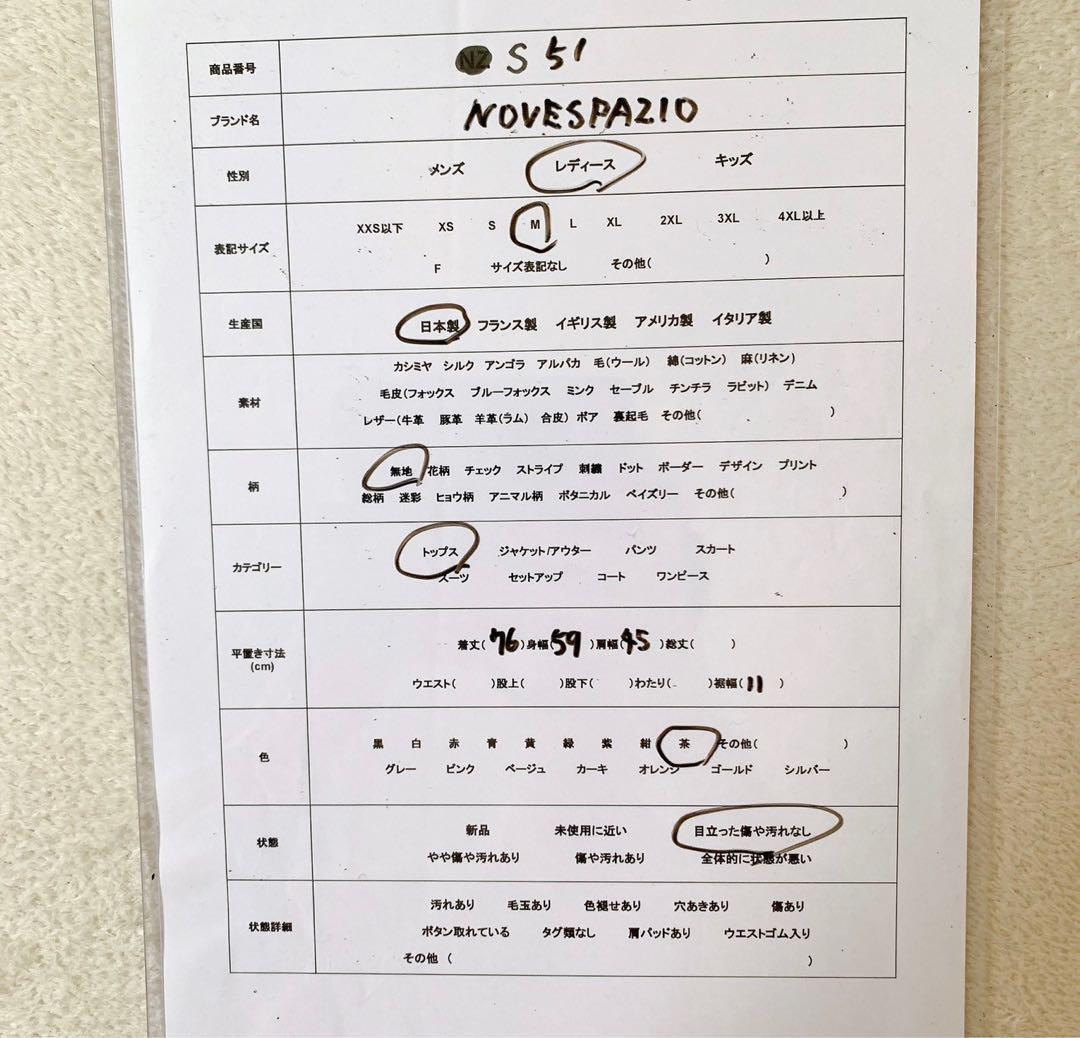 商品番号 NZ S 51
ブランド名 NOVESPAZIO
性別 メンズ レディース キッズ
表記サイズ XXS以下 XS S M L XL 2XL 3XL 4XL以上
F サイズ表記なし その他( )
生産国 日本製 フランス製 イギリス製 アメリカ製 イタリア製
素材 カシミヤ シルク アンゴラ アルパカ 毛(ウール) 綿(コットン) 麻(リネン)
毛皮(フォックス ブルーフォックス ミンク セーブル チンチラ ラビット) デニム
レザー(牛革 豚革 羊革(ラム) 合皮) ボア 裏起毛 その他( )
柄 無地 花柄 チェック ストライプ 刺繍 ドット ボーダー デザイン プリント
総柄 迷彩 ヒョウ柄 アニマル柄 ボタニカル ペイズリー その他( )
カテゴリー トップス ジャケット/アウター パンツ スカート
スーツ セットアップ コート ワンピース
平置き寸法 (cm) 着丈(76)身幅(59)肩幅(45)総丈( )
ウエスト( )股上( )股下( )わたり( )裾幅(11)
色 黒 白 赤 青 黄 緑 紫 紺 茶 その他( )
グレー ピンク ベージュ カーキ オレンジ ゴールド シルバー
状態 新品 未使用に近い 目立った傷や汚れなし
やや傷や汚れあり 傷や汚れあり 全体的に状態が悪い
状態詳細 汚れあり 毛玉あり 色褪せあり 穴あきあり 傷あり
ボタン取れている タグ類なし 肩パッドあり ウエストゴム入り
その他( )